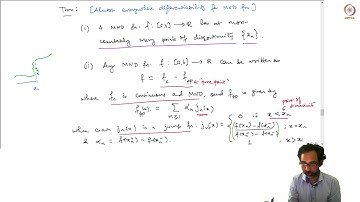 Thm: [Almost everywhere differentiability for MND fns.]
(i) A MND fn. f: [a,b] → ℝ has at most
countably many points of discontinuity {x_n}
(ii) Any MND fn. f: [a,b] → ℝ can be written as
f = f_c - f_pp
where f_c is continuous and MND, and f_pp is given by
f_pp(x) := ∑_{n≥1} α_n j_n(x)
where each j_n(x) is a jump fn: j_n(x) = { 0 if x < x_n
(f(x_n) - f(x_n^-)) / (f(x_n^+) - f(x_n^-)) ; x = x_n
& α_n = f(x_n^+) - f(x_n^-). 1 ; x > x_n
a
NPTEL